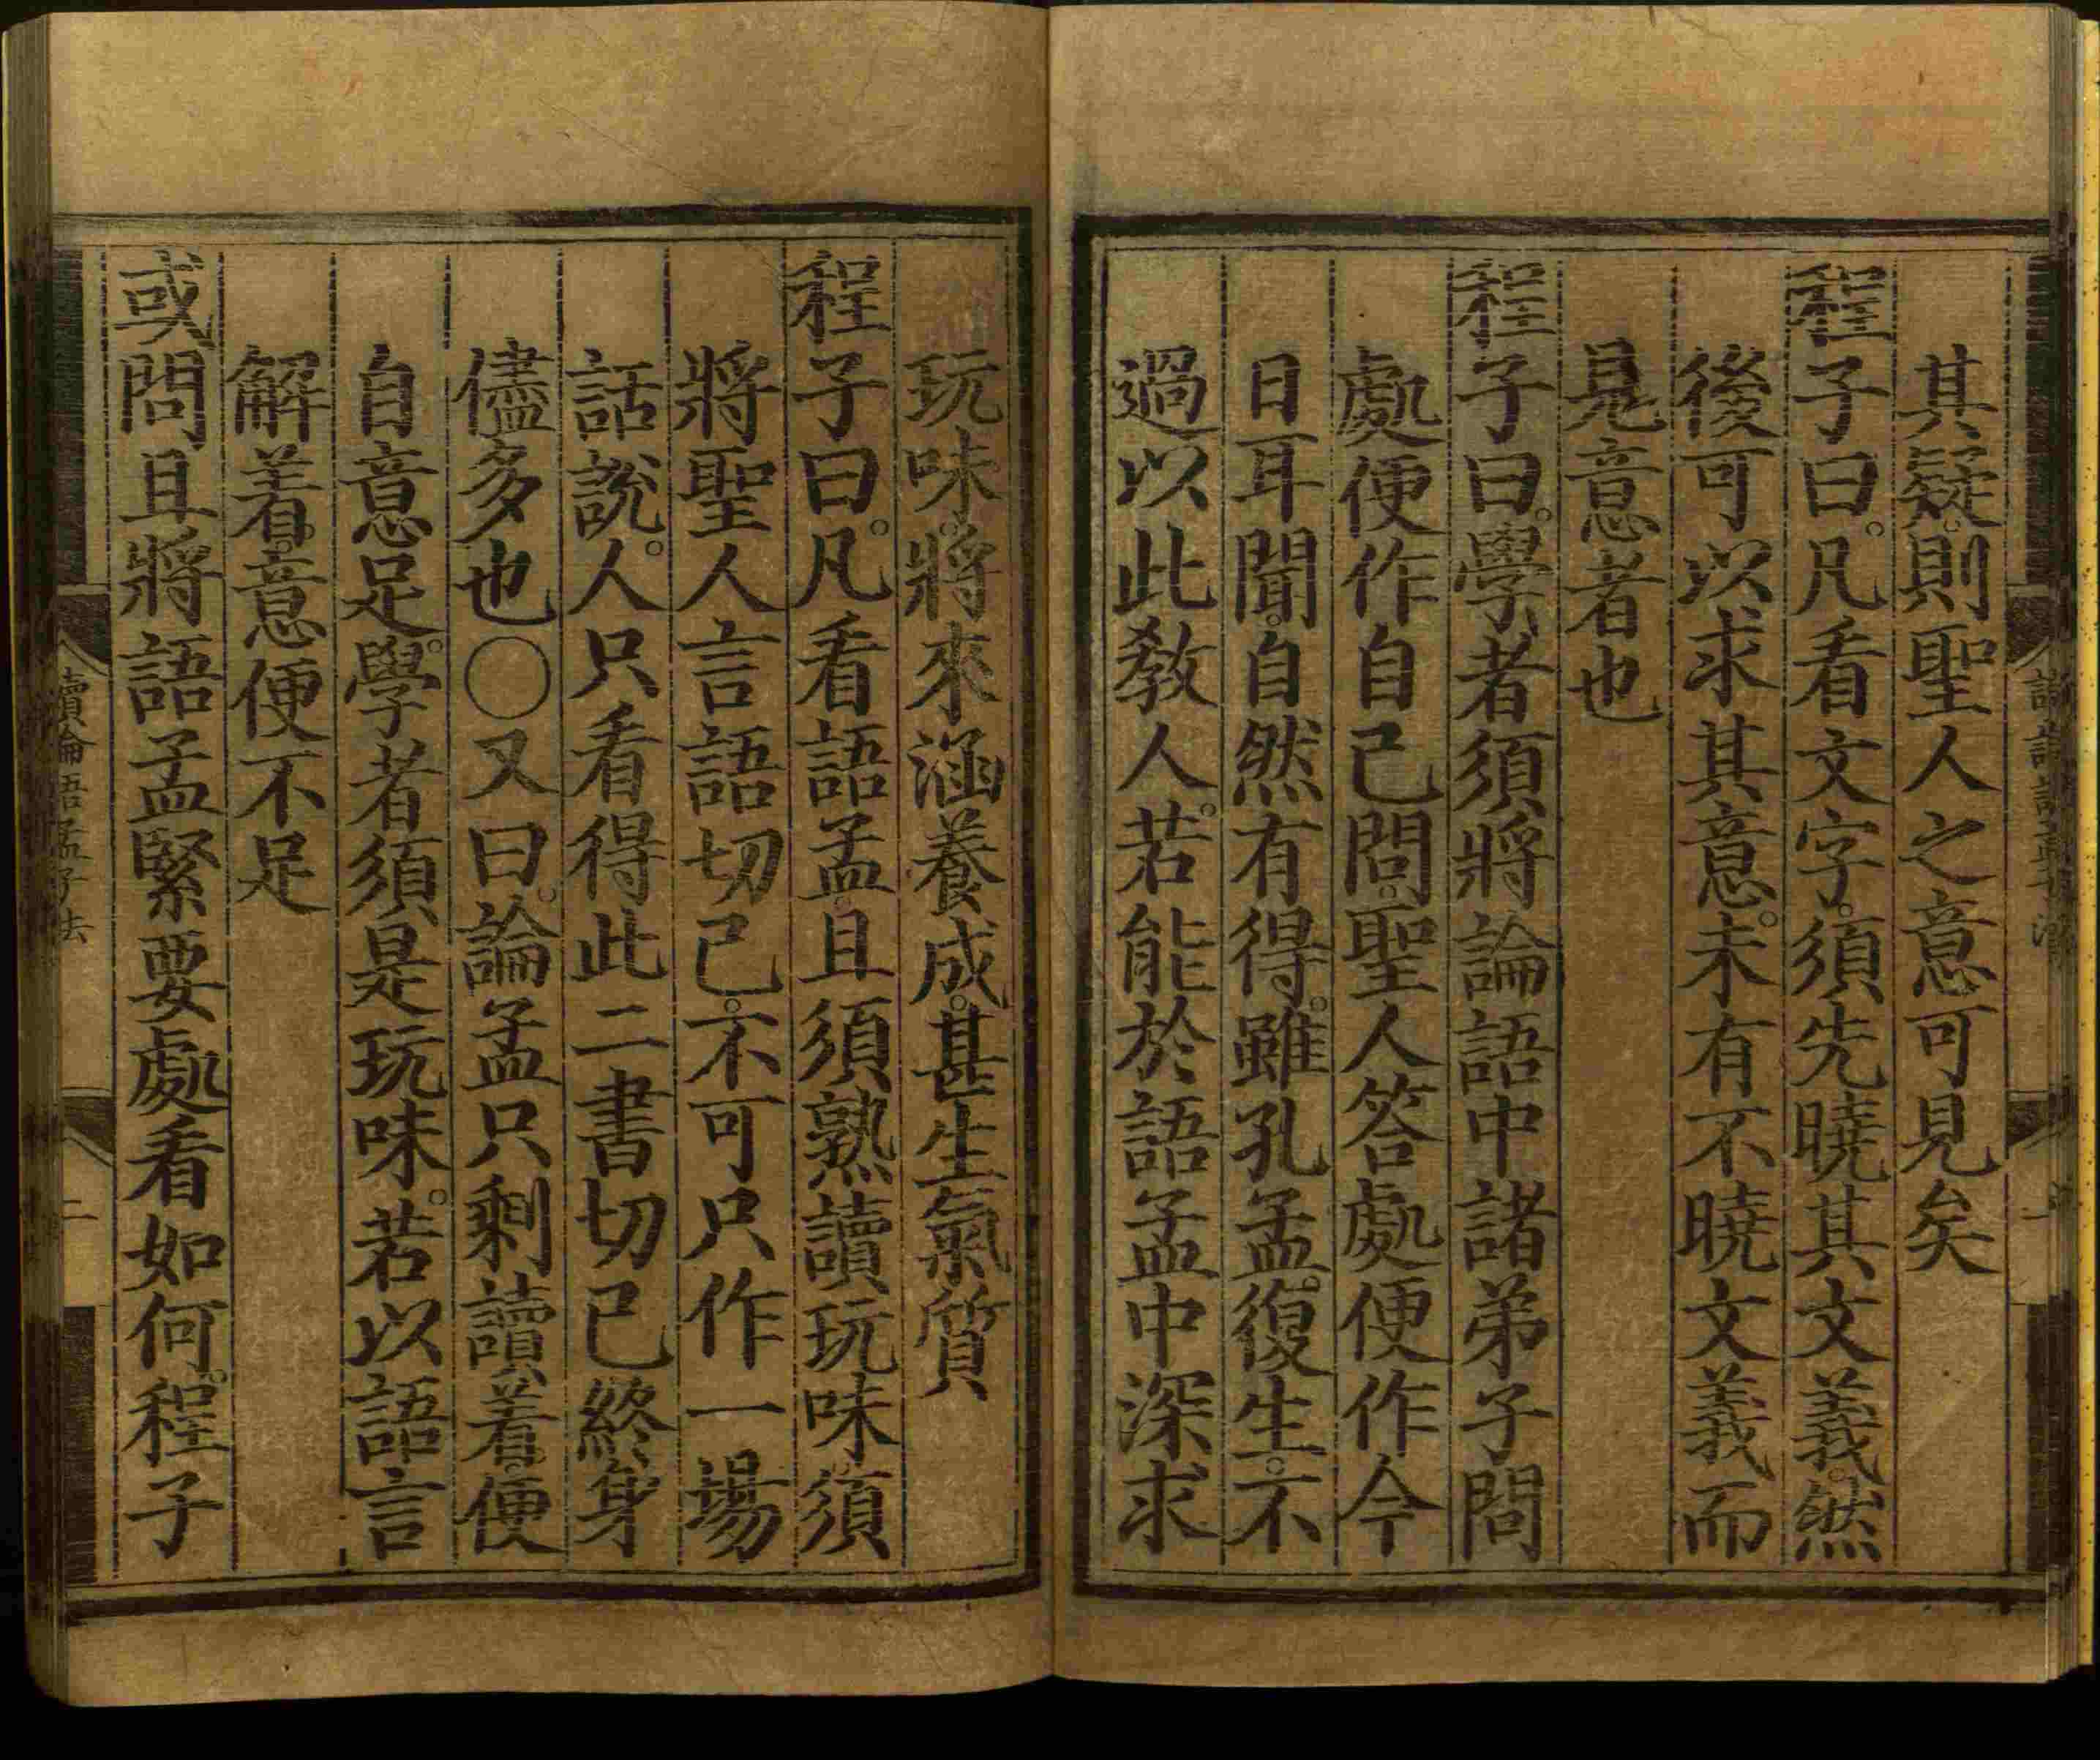 其疑。則聖人之意可見矣
程子曰。凡看文字。須先曉其文義。然
後可以求其意。未有不曉文義而
見意者也
程子曰。學者須將論語中諸弟子問
處便作自己問。聖人答處便作今
日耳聞。自然有得。雖孔孟復生。不
過以此敎人。若能於語孟中深求
玩味。將來涵養成。甚生氣質
程子曰。凡看語孟。且須熟讀玩味須
將聖人言語切己。不可只作一場
話說。人只看得此二書切己終身
儘多也〇又曰。論孟只剩讀着。便
自意足。學者須是玩味。若以語言
解着。意便不足
或問且將語孟緊要處看如何。程子
讀論語孟子法
二